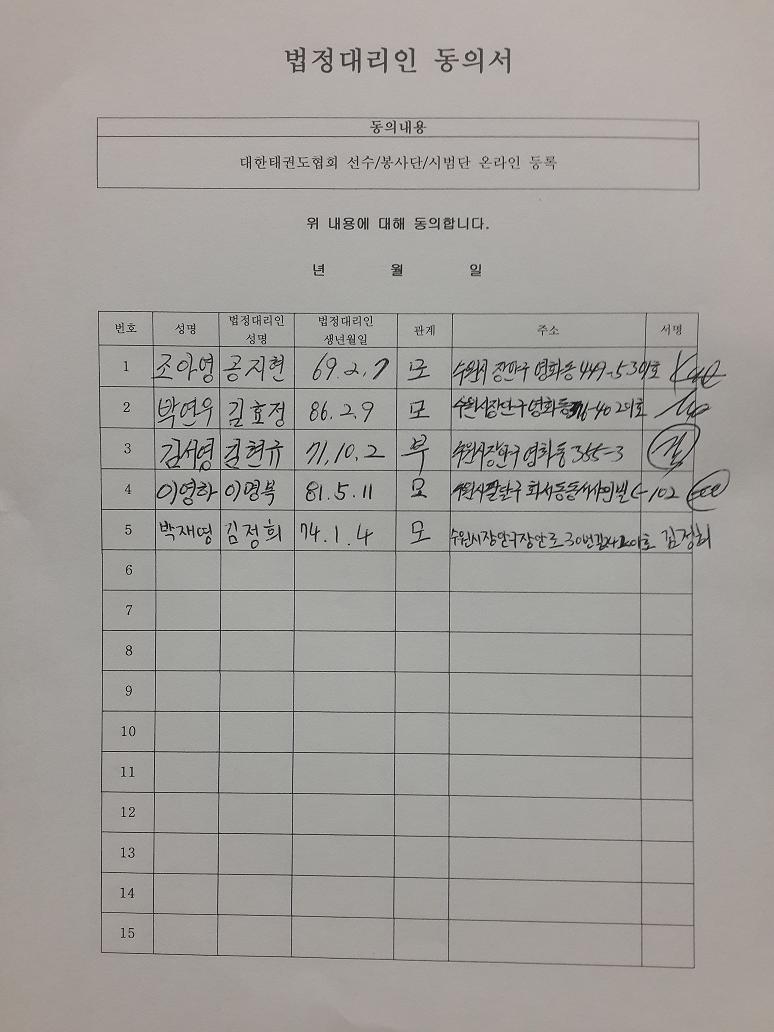 법정대리인 동의서
동의내용
대한태권도협회 선수/봉사단/시범단 온라인 등록
위 내용에 대해 동의합니다.
년 월 일
번호 성명 법정대리인 성명 법정대리인 생년월일 관계 주소 서명
1 조아영 공지현 69.2.7 모 수원시 장안구 영화동 449-5 301호
2 박연우 김효정 86.2.9 모 수원시 장안구 영화동 402호
3 김서영 김현규 71.10.2 부 수원시 장안구 영화동 365-3 김
4 이영하 이명복 81.5.11 모 수원시 팔달구 화서동 C-102
5 박재영 김정희 74.1.4 모 수원시 장안구 장안로 30번길 김정희
6
7
8
9
10
11
12
13
14
15